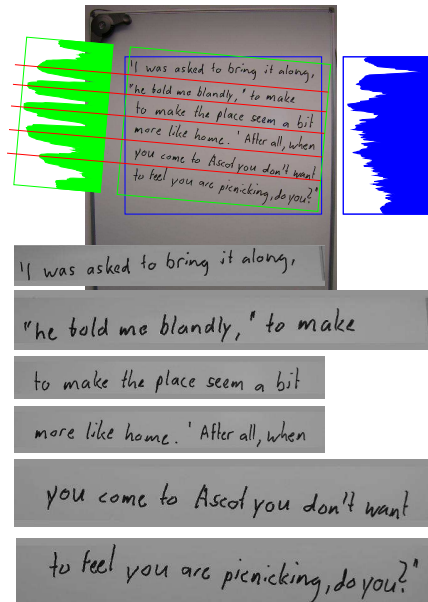 'I was asked to bring it along,
"he told me blandly," to make
to make the place seem a bit
more like home. 'After all, when
you come to Ascot you don't want
to feel you are picnicking, do you?"
'I was asked to bring it along,
"he told me blandly," to make
to make the place seem a bit
more like home. 'After all, when
you come to Ascot you don't want
to feel you are picnicking, do you?"